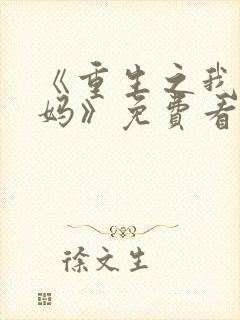 《重生之我
妈》免费看
徐文生